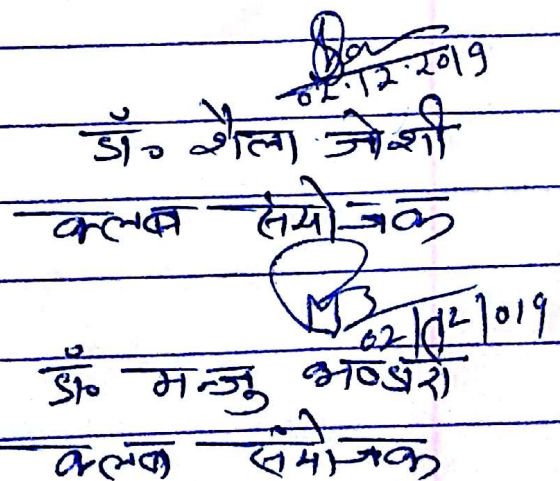 02.12.2019
डॉ० शैला जोशी
क्लब संयोजक
02/12/019
डॉ० मन्जु भण्डारी
क्लब संयोजक